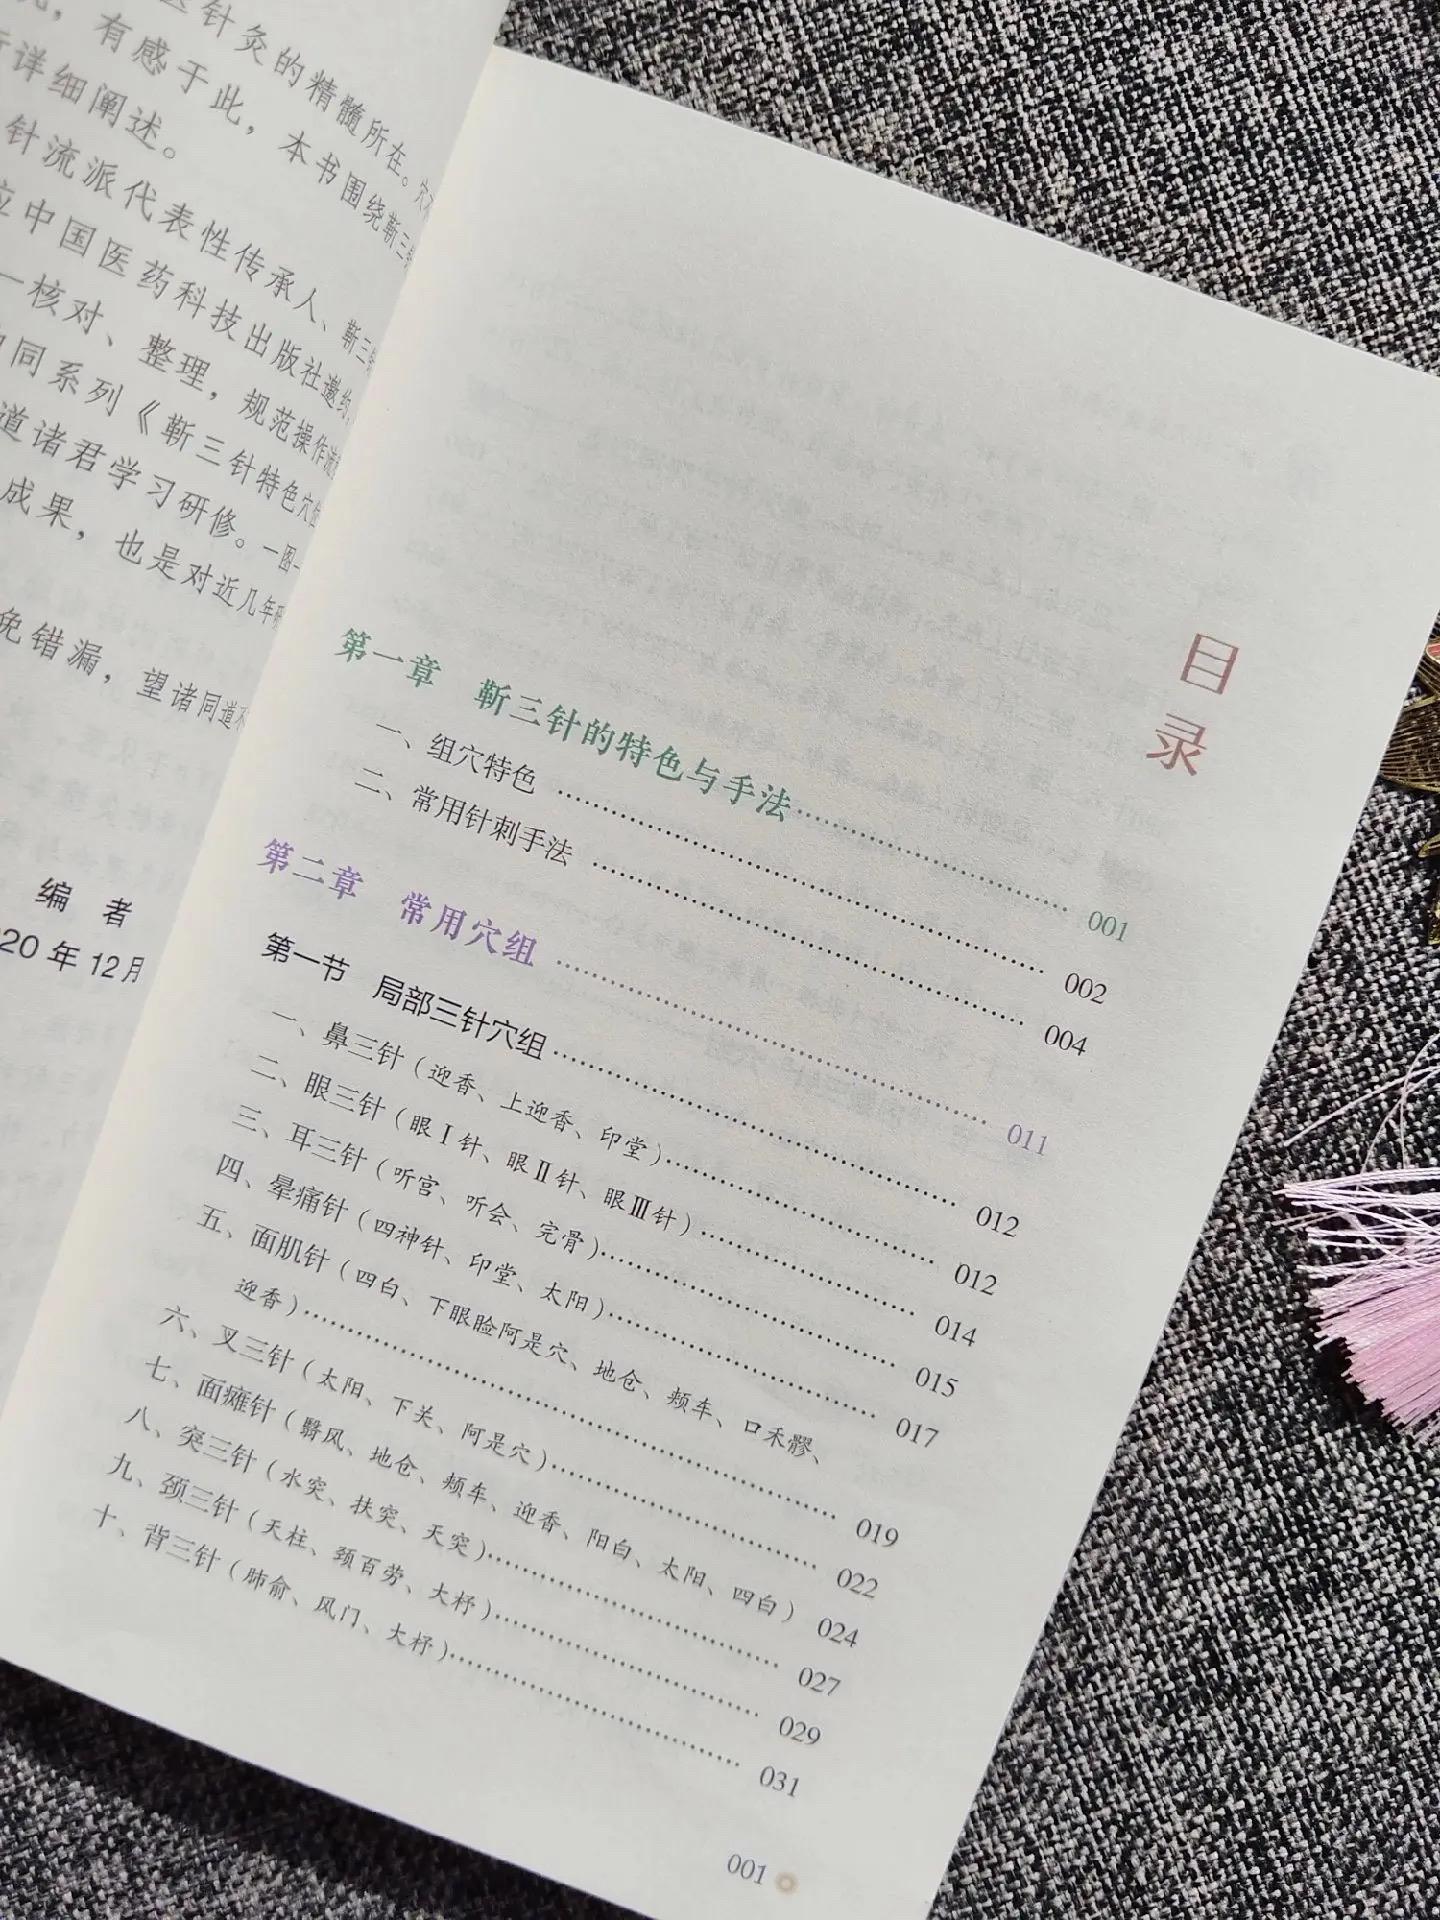 医针灸的精髓所在。穴
，有感于此，本书围绕靳三
详细阐述。
针流派代表性传承人、靳三
中国医药科技出版社邀约，
一核对、整理，规范操作流
同系列《靳三针特色穴
道诸君学习研修。一图一
成果，也是对近几年
免错漏，望诸同道不
编 者
20年12月
目录
第一章 靳三针的特色与手法 001
一、组穴特色 002
二、常用针刺手法 004
第二章 常用穴组 011
第一节 局部三针穴组 012
一、鼻三针（迎香、上迎香、印堂） 012
二、眼三针（眼Ⅰ针、眼Ⅱ针、眼Ⅲ针） 014
三、耳三针（听宫、听会、完骨） 015
四、晕痛针（四神针、印堂、太阳） 017
五、面肌针（四白、下眼睑阿是穴、地仓、颊车、口禾髎、
迎香） 019
六、叉三针（太阳、下关、阿是穴） 022
七、面瘫针（翳风、地仓、颊车、迎香、阳白、太阳、四白） 024
八、突三针（水突、扶突、天突） 027
九、颈三针（天柱、颈百劳、大杼） 029
十、背三针（肺俞、风门、大杼） 031
001